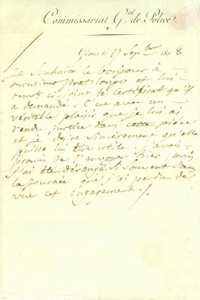 Commissariat Gral de Police
Gênes le 17 Sept. an 8
Je souhaite le bonjour à
monsieur et lui
remet ci joint le certificat qu'il
a demandé. C'est avec un
véritable plaisir que je lui ai
rendu justice dans cette pièce
et je désire sincèrement qu'elle
puisse lui être utile. j'avais
promis de l'envoyer hier, mais
j'ai été dérangé si souvent dans
la journée que j'ai perdu de
vue cet engagement ./.